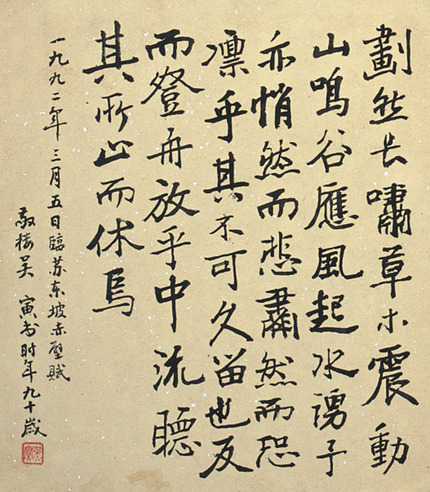 劃然长嘯草木震動
山鳴谷應風起水湧予
亦悄然而悲肅然而恐
凛乎其不可久留也反
而登舟放乎中流聽
其所止而休焉
一九九二年三月五日臨苏东坡赤壁賦
吴寅书时年九十歲